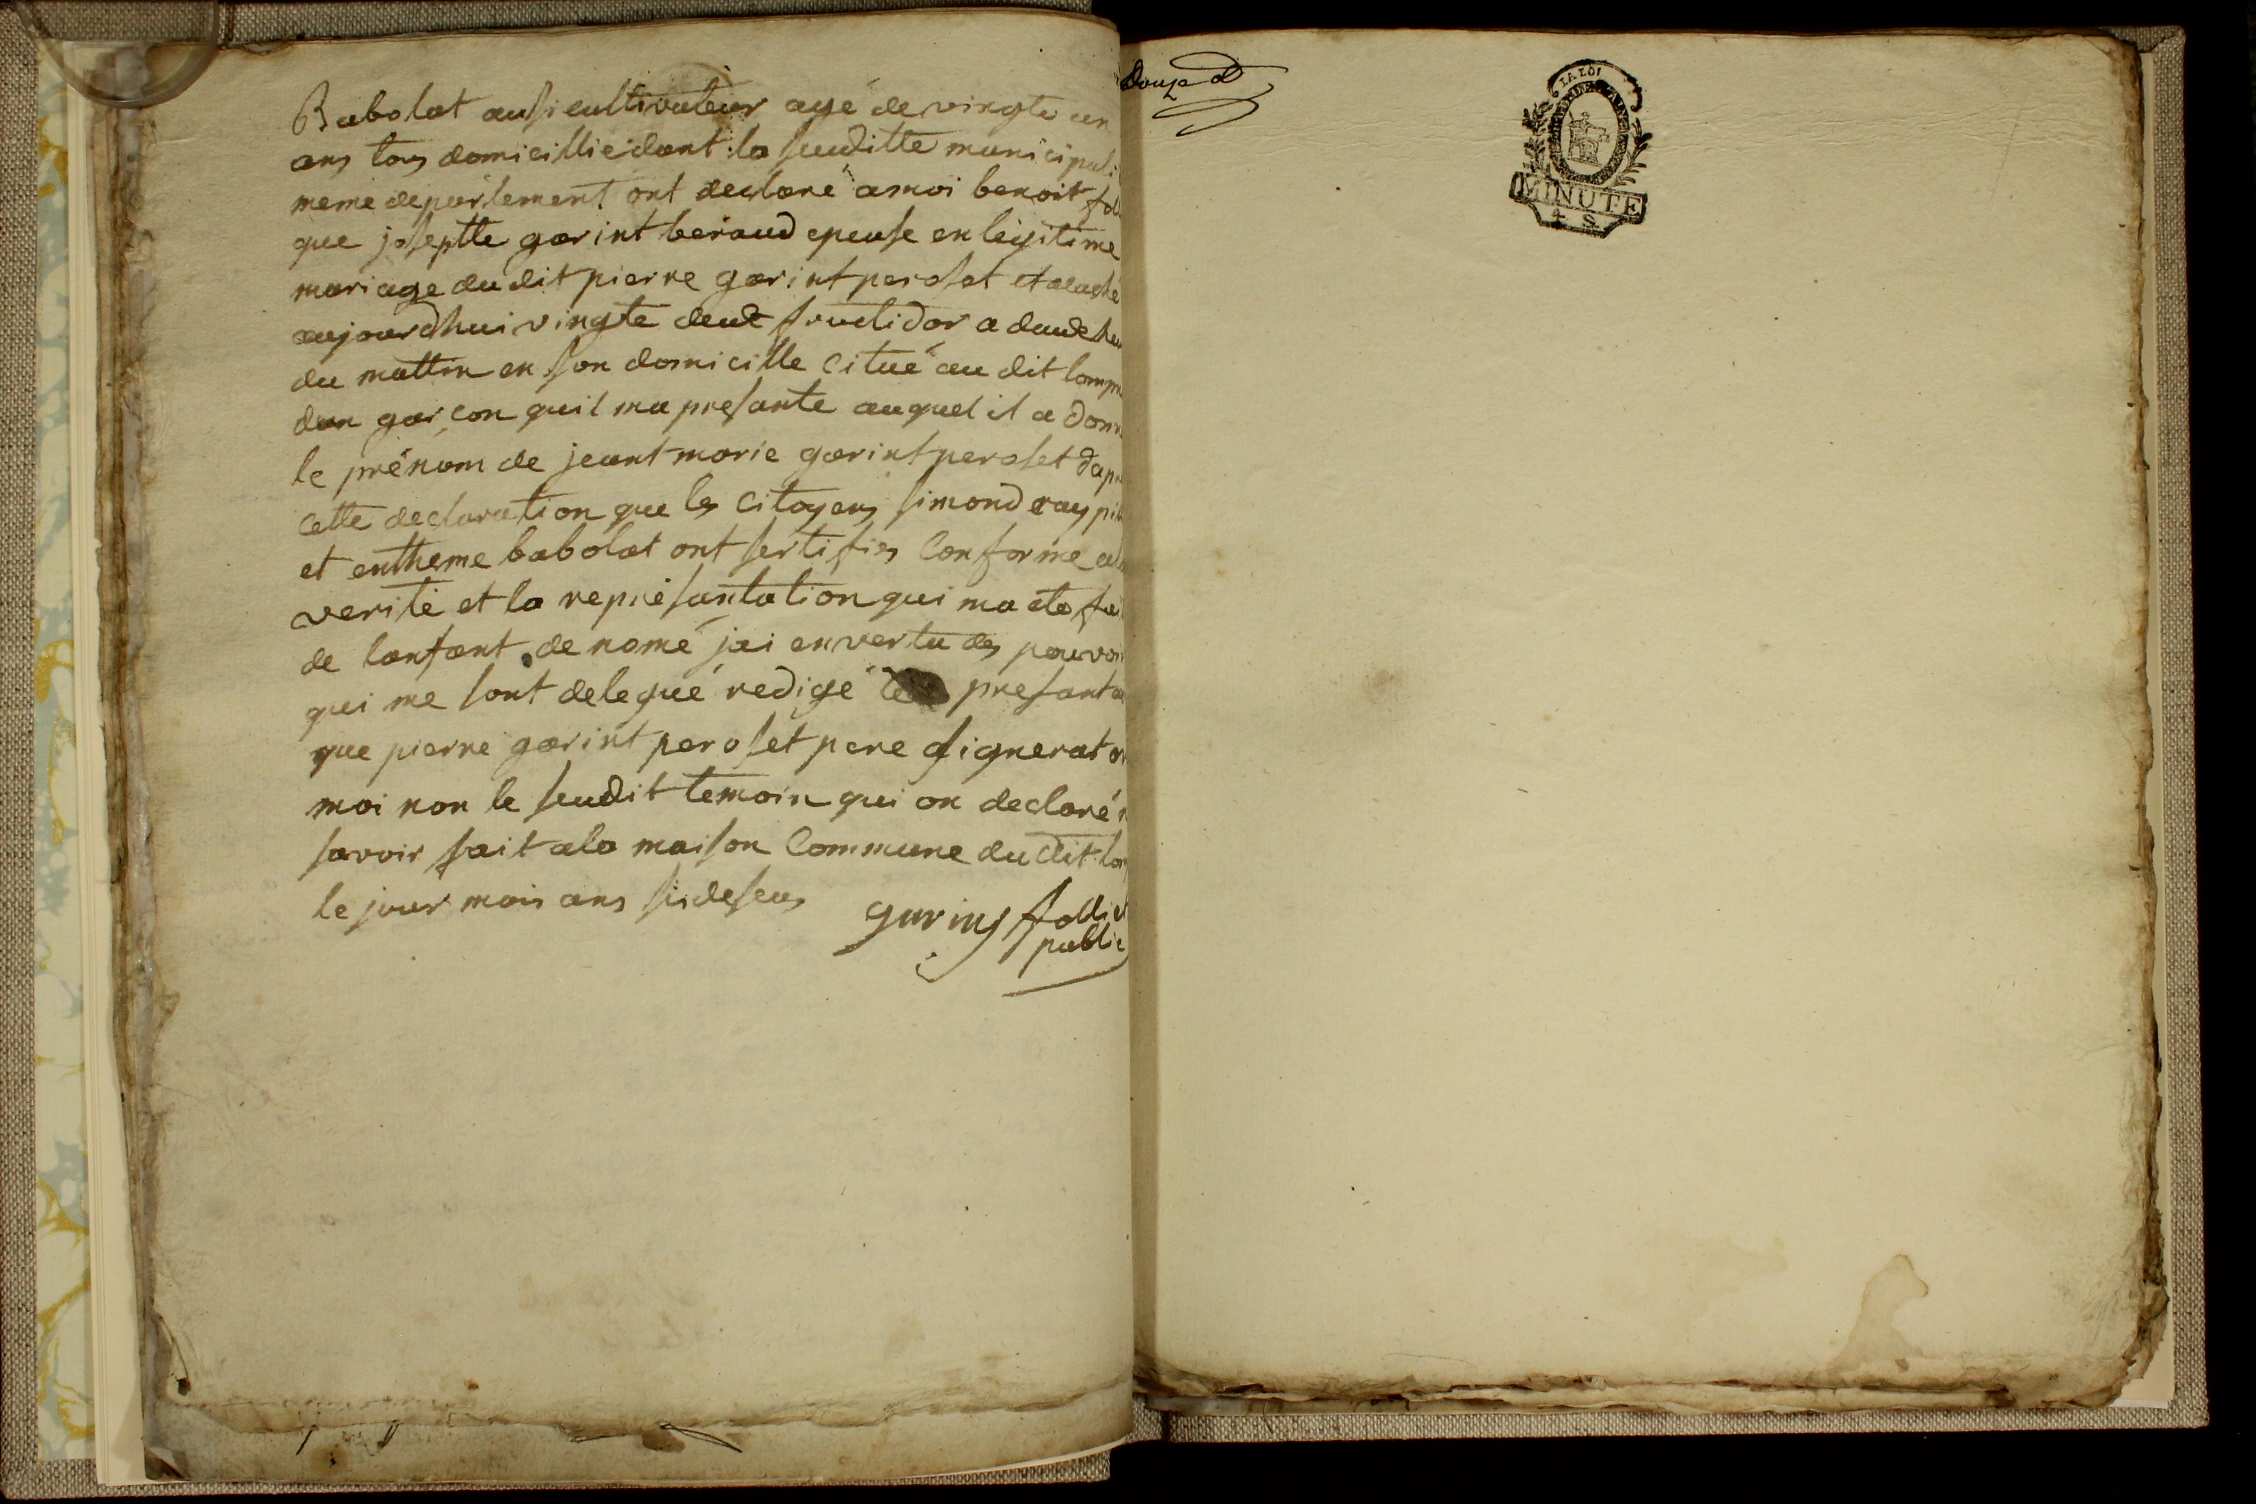 Babolat ausi cultivateur agé de vingte un
ans tous domicillié dant la sudditte municipali
meme departement ont declaré a moi benoit foll
que joseptte garint beraud epeuse en legitime
mariage du dit pierre garint peroset et acuché
aujourdhui vingte deux fructidor a deux heu
du mattin en son domicille citué au dit lomp
dun garçon quil ma presante auquel il a donn
le prénom de jeant marie garint peroset dapr
cette declaration que les citoyens simond ray
et entheme babolat ont sertifies conforme a
verité et la represantation qui ma ete fai
de lanfant denomé jai en vertu des pouvoir
qui me sont delegué redigé le presant a
que pierre garint peroset pere signerat
moi non le sudit temoin qui on declaré n
savoir fait a la maison commune du dit lom
le jour mois ans sidesus
gurins folliet
public
douze
LA LOI
MINUTE
4 S